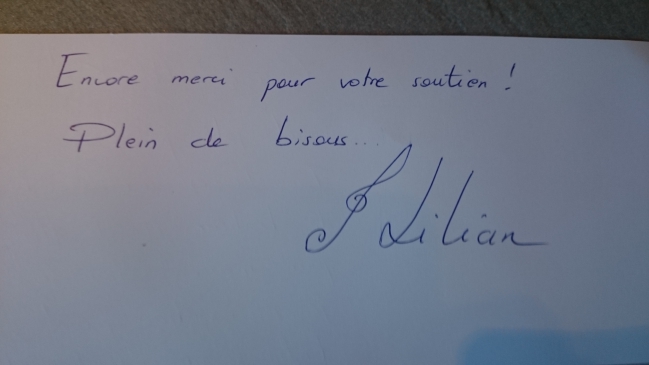 Encore merci pour votre soutien !
Plein de bisous...
Lilian